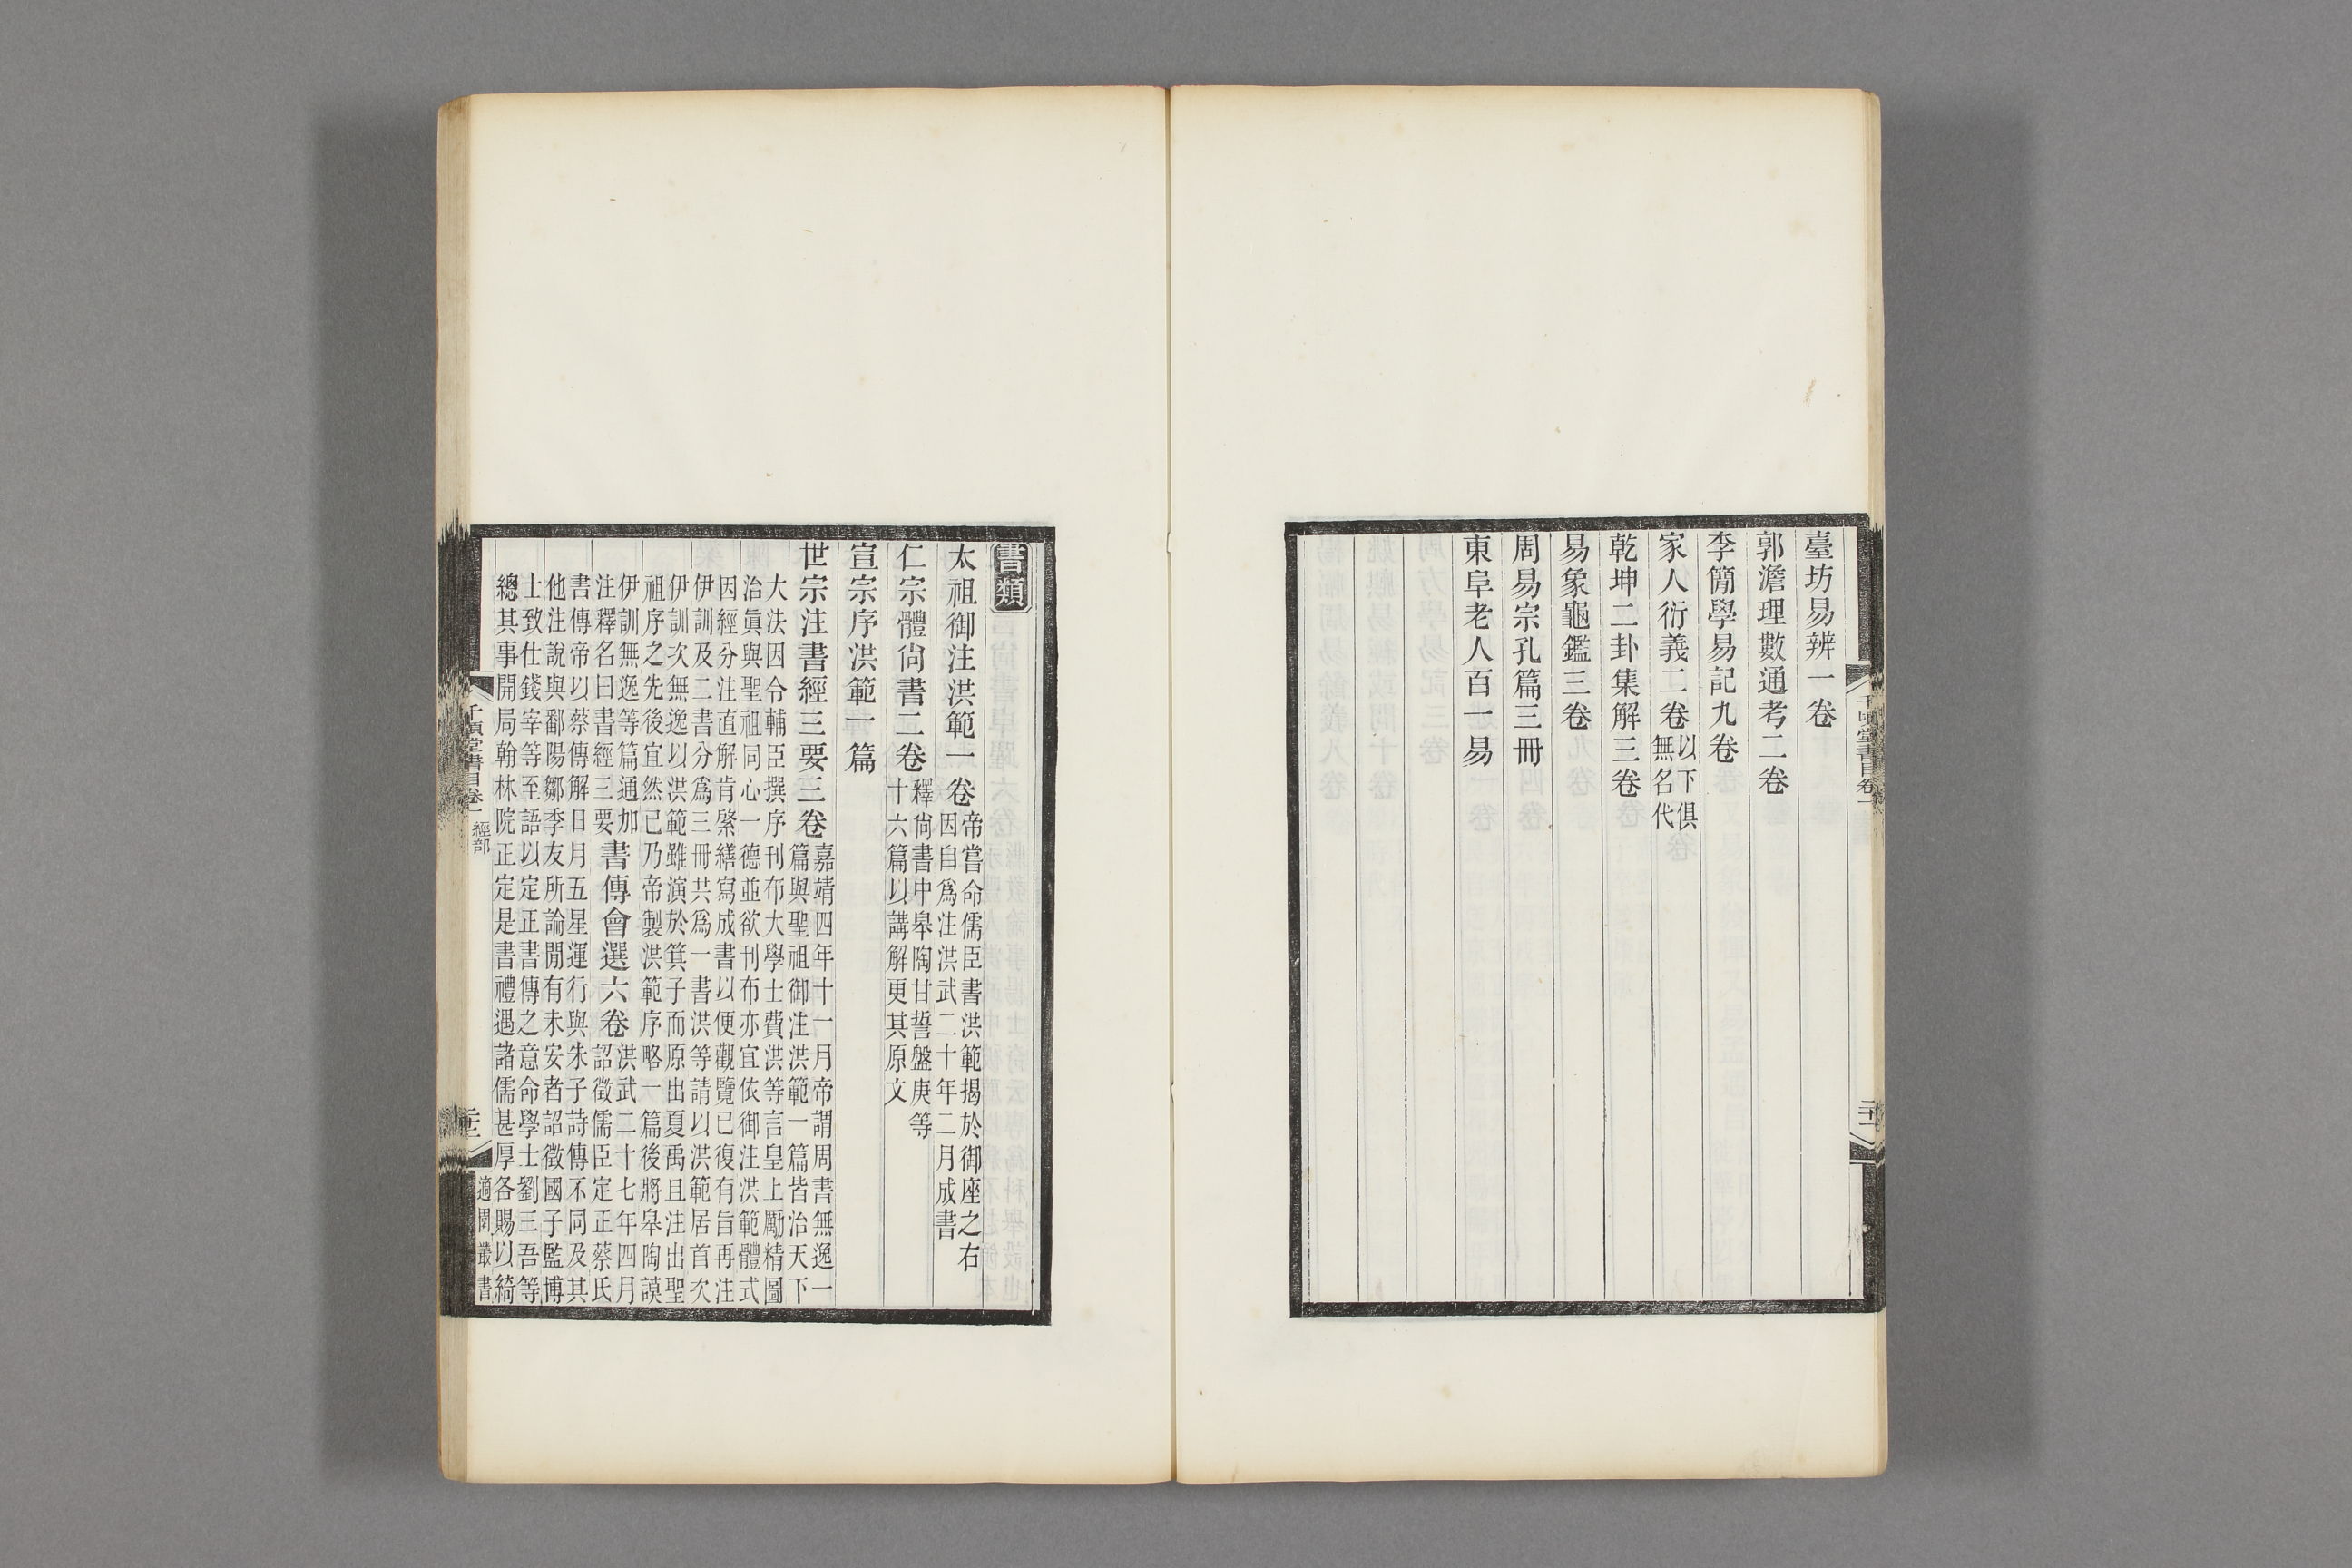 臺坊易辨一卷
郭澹理數通考二卷
李簡學易記九卷
家人衍義二卷以下俱
無名代
乾坤二卦集解三卷
易象龜鑑三卷
周易宗孔篇三冊
東阜老人百一易
千頃堂書目卷一
書類
太祖御注洪範一卷帝嘗命儒臣書洪範揭於御座之右
因自爲注洪武二十年二月成書
仁宗體尙書二卷釋尙書中皋陶甘誓盤庚等
十六篇以講解更其原文
宣宗序洪範一篇
世宗注書經三要三卷嘉靖四年十一月帝謂周書無逸一
篇與聖祖御注洪範一篇皆治天下
大法因令輔臣撰序刊布大學士費洪等言皇上勵精圖
治眞與聖祖同心一德並欲刊布亦宜依御注洪範體式
因經分注直解肯綮繕寫成書以便觀覽已復有旨再注
伊訓及二書分爲三冊共爲一書洪等請以洪範居首次
伊訓次無逸以洪範雖演於箕子而原出夏禹且注出聖
祖序之先後宜然已乃帝製洪範序略一篇後將皋陶謨
伊訓無逸等篇通加
注釋名曰書經三要書傳會選六卷洪武二十七年四月
詔徵儒臣定正蔡氏
書傳帝以蔡傳解日月五星運行與朱子詩傳不同及其
他注說與鄱陽鄒季友所論閒有未安者詔徵國子監博
士致仕錢宰等至語以定正書傳之意命學士劉三吾等
總其事開局翰林院正定是書禮遇諸儒甚厚各賜以綺
千頃堂書目卷一 經部
適園叢書